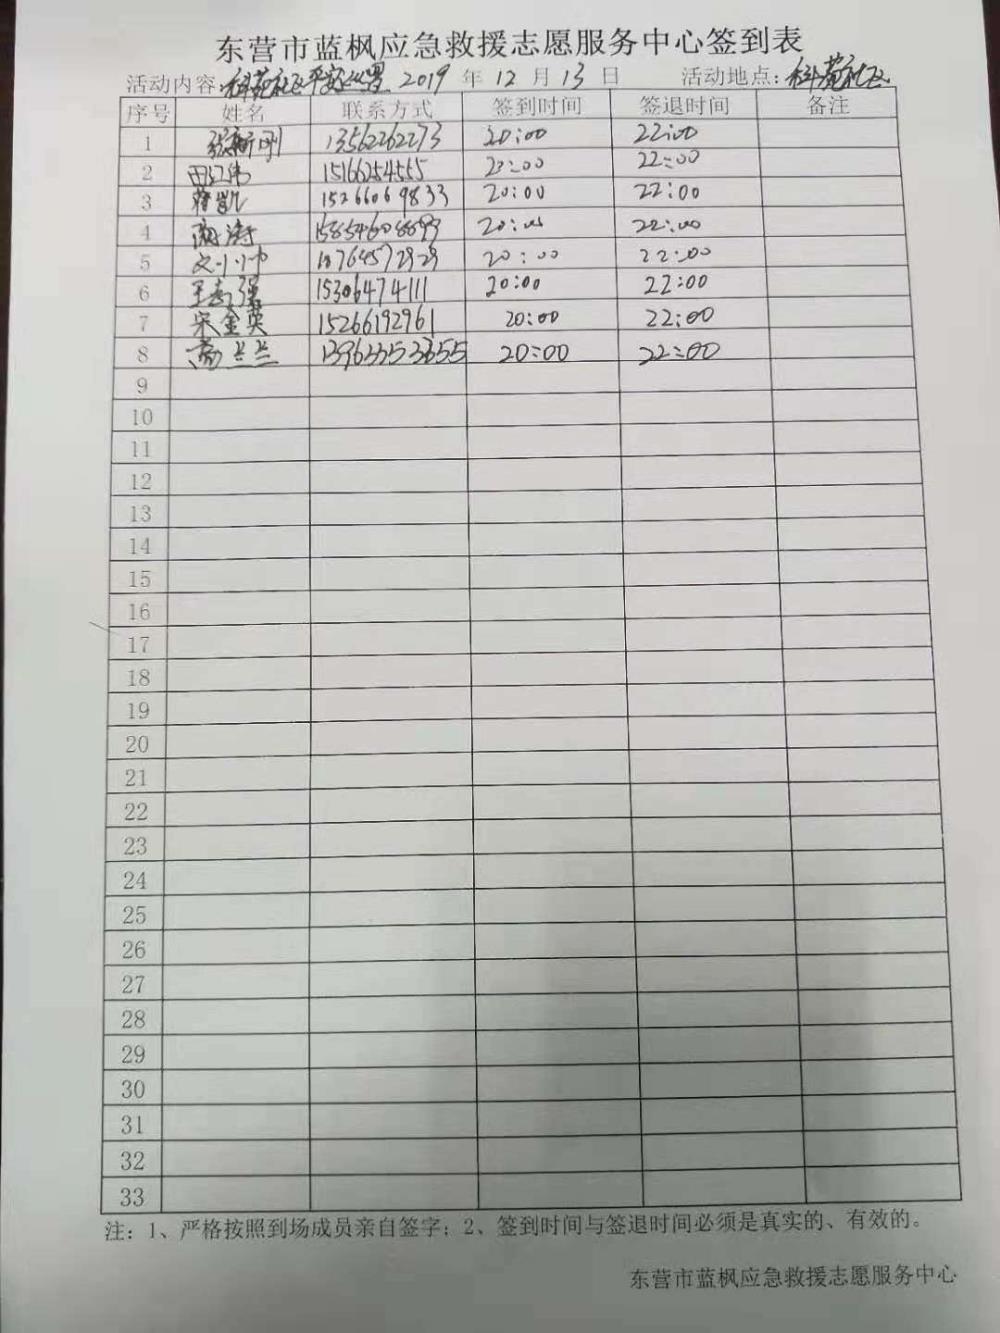 东营市蓝枫应急救援志愿服务中心签到表
活动内容:科苑社区平安巡逻 2019 年 12 月 13 日 活动地点:科苑社区
序号 姓名 联系方式 签到时间 签退时间 备注
1 刚 13562262273 20:00 22:00
2 田红伟 15166254565 20:00 22:00
3 蒋凯 15266069833 20:00 22:00
4 涛 20:00 22:00
5 18764572929 20:00 22:00
6 王志强 15306474111 20:00 22:00
7 宋金英 15266192961 20:00 22:00
8 兰兰 20:00 22:00
9
10
11
12
13
14
15
16
17
18
19
20
21
22
23
24
25
26
27
28
29
30
31
32
33
注:1、严格按照到场成员亲自签字;2、签到时间与签退时间必须是真实的、有效的。
东营市蓝枫应急救援志愿服务中心